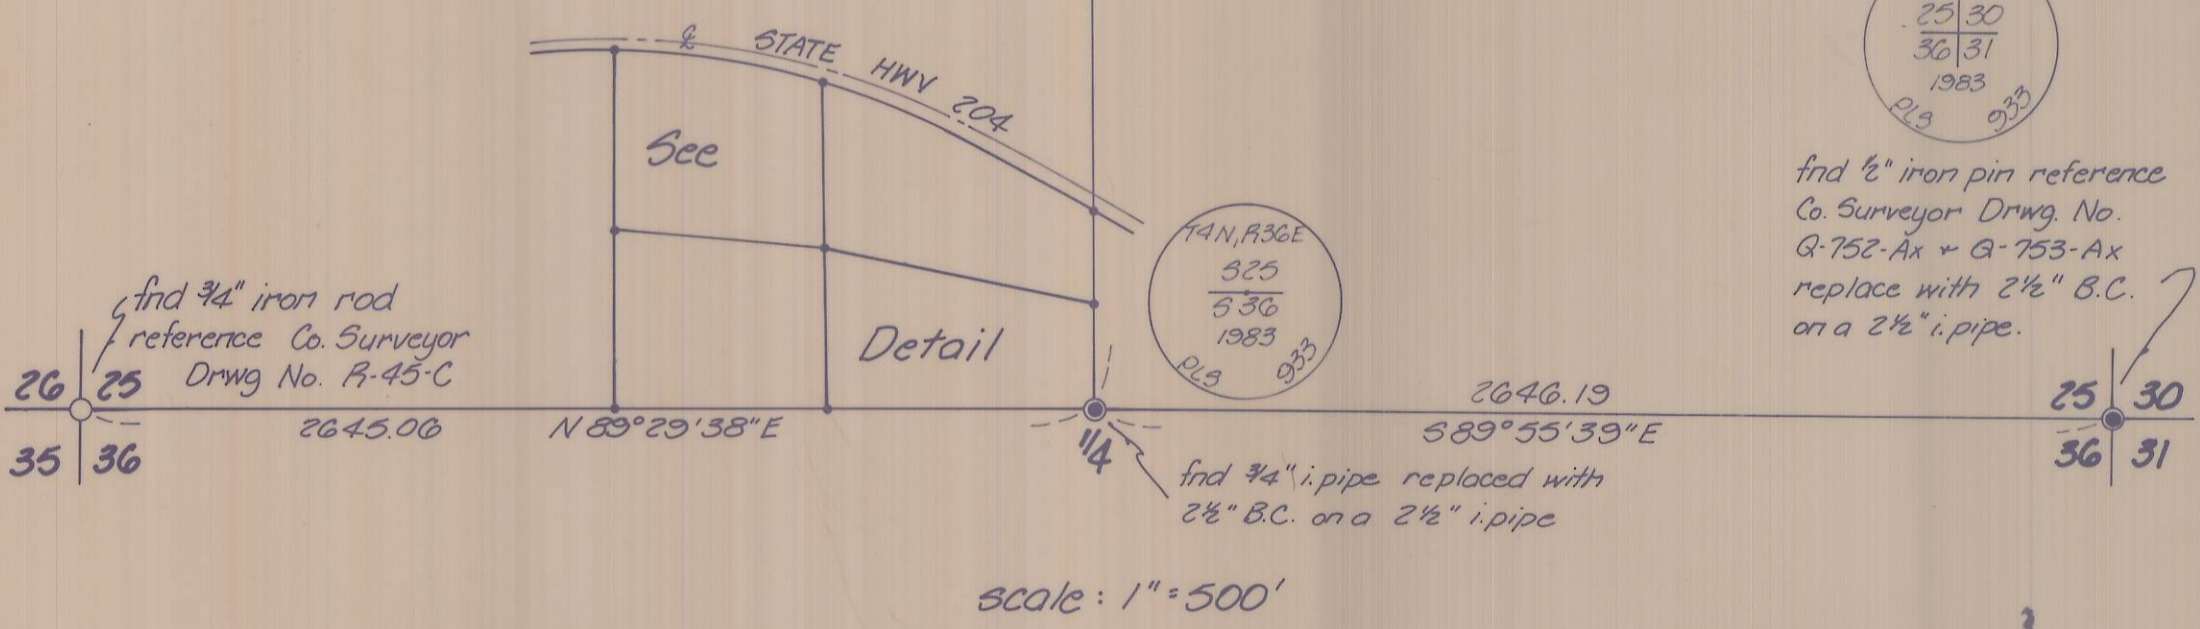 ℄ STATE HWY 204
See
Detail
25 30
36 31
1983
PLS 933
fnd ½" iron pin reference
Co. Surveyor Drwg. No.
Q-752-Ax & Q-753-Ax
replace with 2½" B.C.
on a 2½" i.pipe.
T4N, R36E
S25
S36
1983
PLS 933
fnd ¾" iron rod
reference Co. Surveyor
Drwg No. R-45-C
26 25
35 36
2645.06
N 89°29'38"E
1/4
2646.19
S89°55'39"E
25 30
36 31
fnd ¾" i.pipe replaced with
2½" B.C. on a 2½" i.pipe
scale: 1"=500'